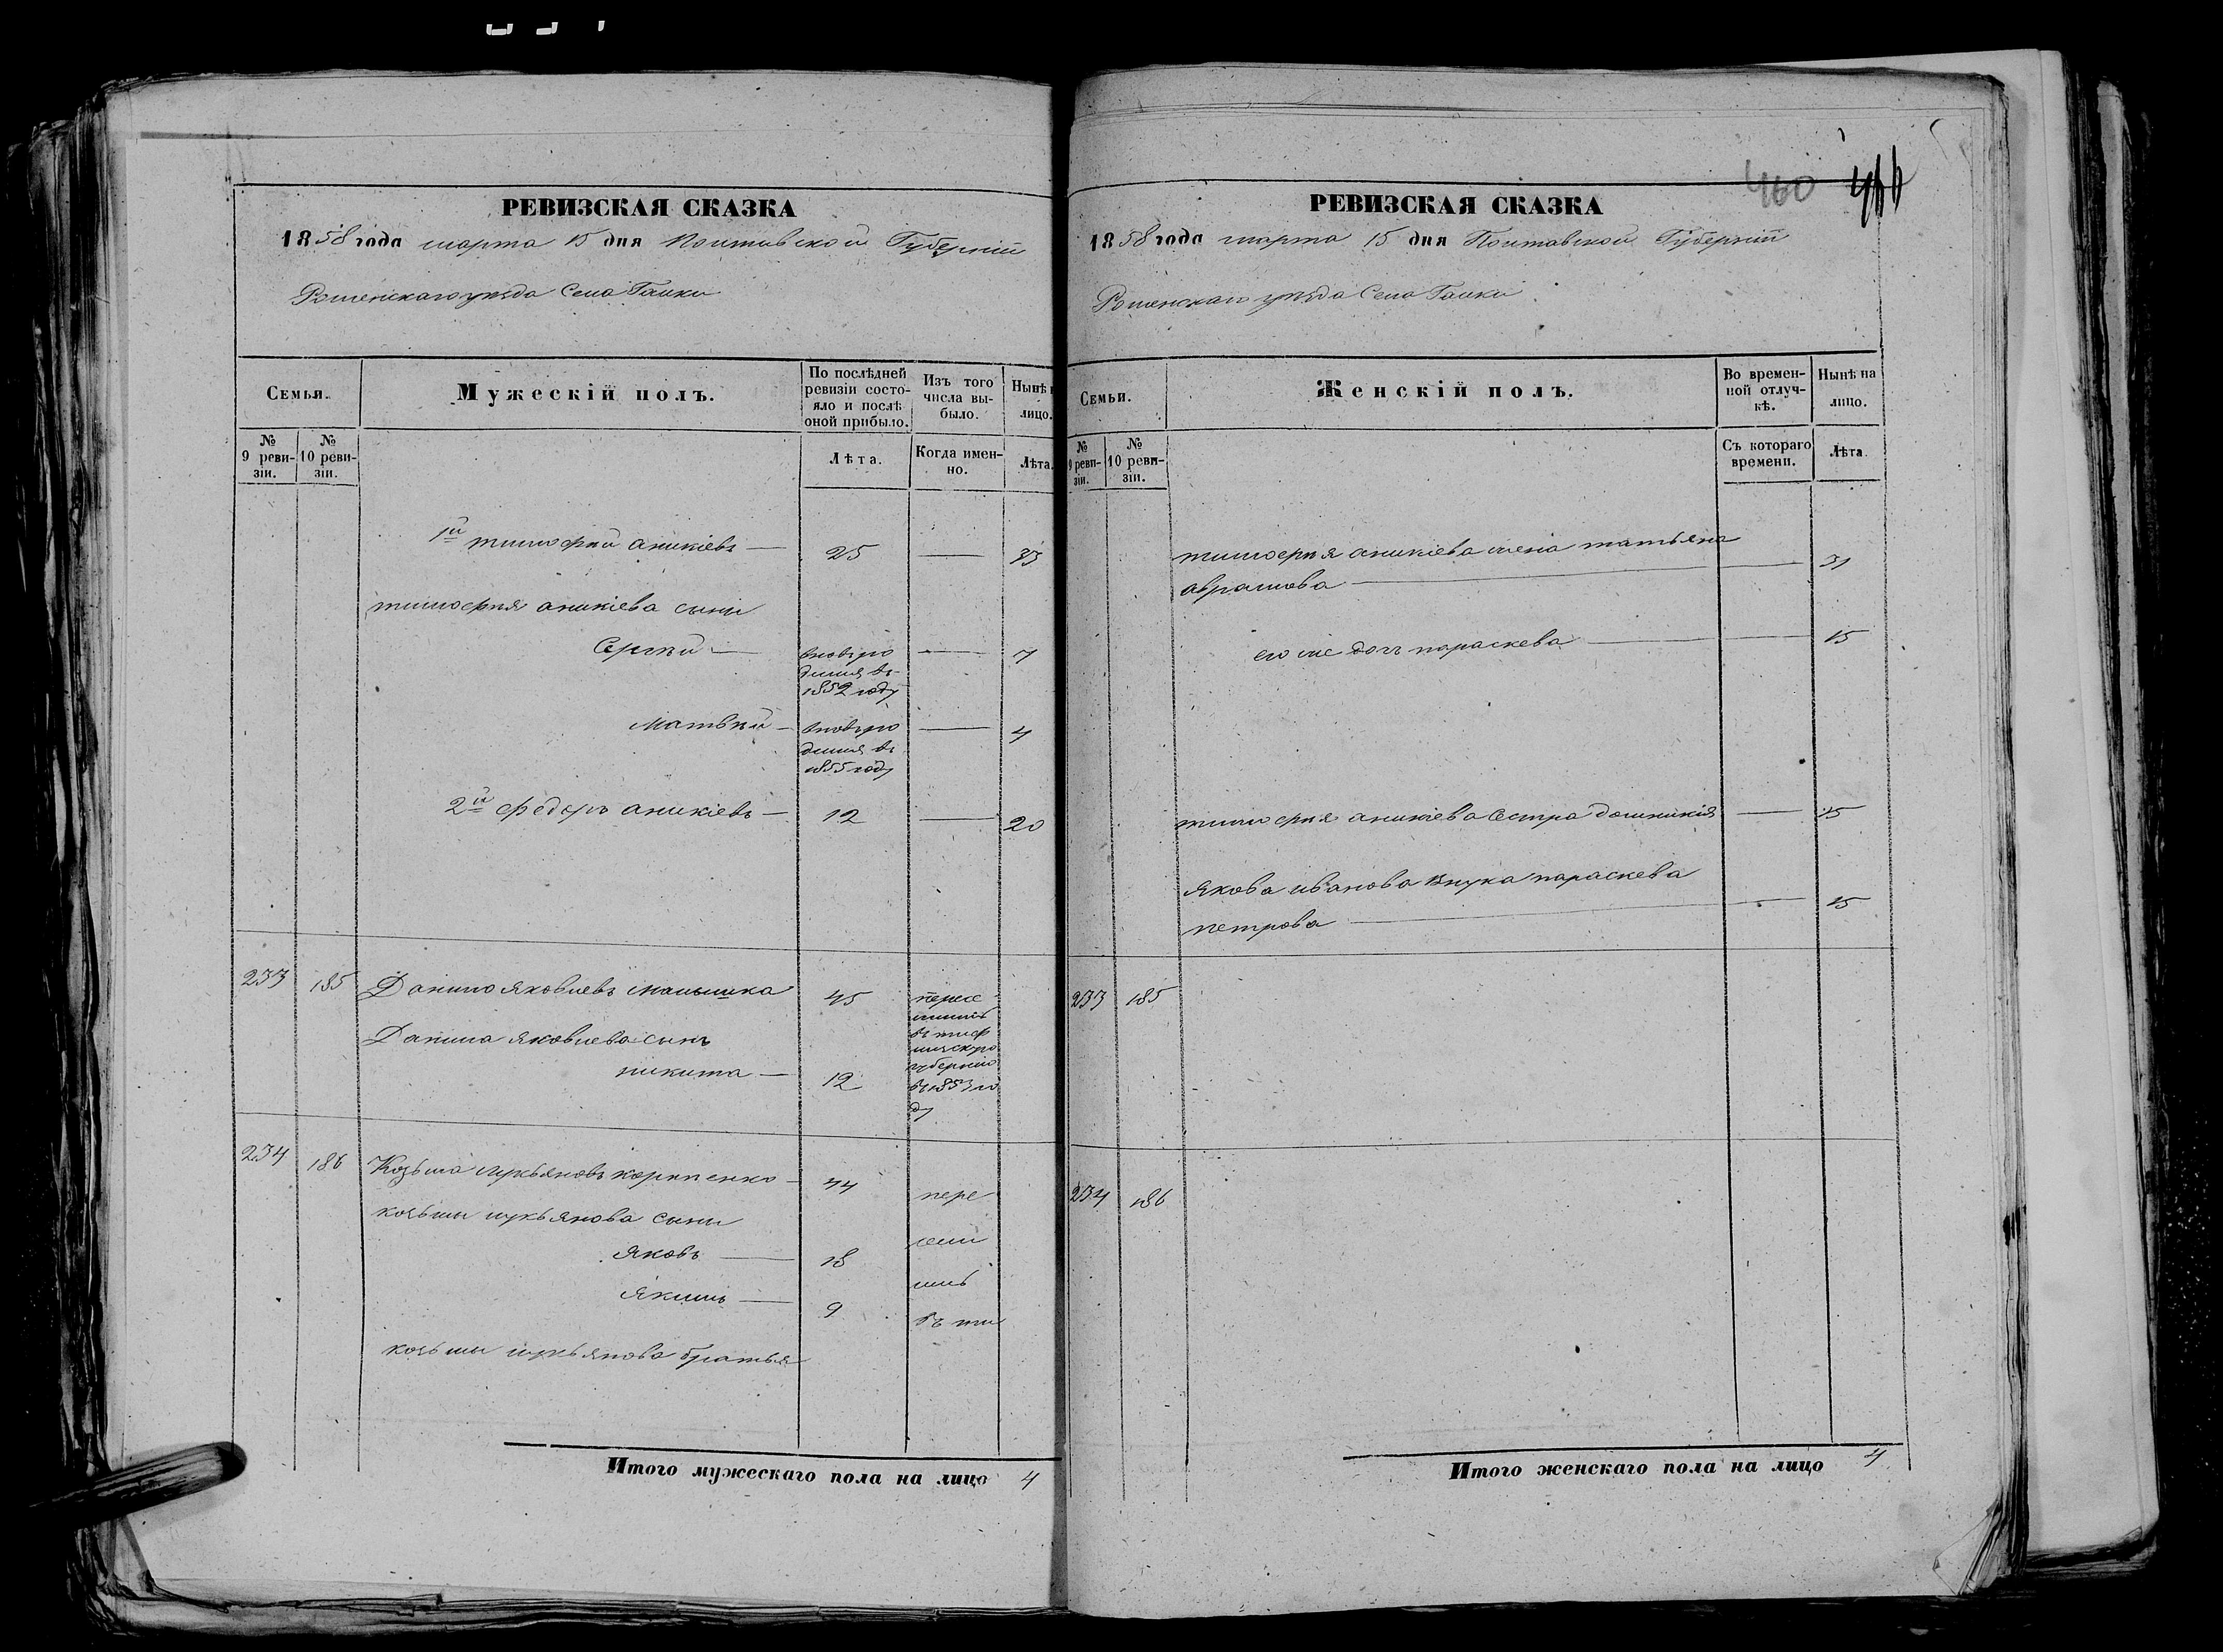 460
РЕВИЗСКАЯ СКАЗКА
1858 года марта 15 дня Полтавской Губерніи
Роменскаго уезда Села Галки
Семьи.
Мужескій полъ.
По послѣдней ревизіи состо-
яло и послѣ
оной прибыло.
Изъ того
числа вы-
было.
Нынѣ н
лицо.
№
9 реви-
зіи.
№
10 реви-
зіи.
Лѣта.
Когда имен-
но.
Лѣта.
1й тимофей аникіевъ — 25 — 33
тимофея аникіева сыни
Сергѣй — вновъ ро — 7
дился въ
1852 году
Матвѣй — вновъ ро — 4
дился въ
1855 году
2й федоръ аникіевъ — 12 — 20
233 185 Данило яковлевъ 45 пересе
лились
въ
Данила яковлева сынъ
губернію
никита — 12 въ 1853 го
ду
234 186 Козьма лукьяновъ 44 пере
козьмы лукьянова сыны
сели
Яковъ — 18
лись
Якимъ — 9
въ
козьмы лукьянова братья
Итого мужескаго пола на лицо 4
РЕВИЗСКАЯ СКАЗКА
1858 года марта 15 дня Полтавской Губерніи
Роменскаго уезда Села Галки
Семьи.
Женскій полъ.
Во времен-
ной отлуч-
кѣ.
Нынѣ на
лицо.
№
9 реви-
зіи.
№
10 реви-
зіи.
Съ котораго
времени.
Лѣта.
тимофея аникіева жена татьяна
аврамова — 31
его же доч параскева — 15
тимофея аникіева Сестра домникія — 15
Якова иванова внука параскева
петрова — 15
233 185
234 186
Итого женскаго пола на лицо 4